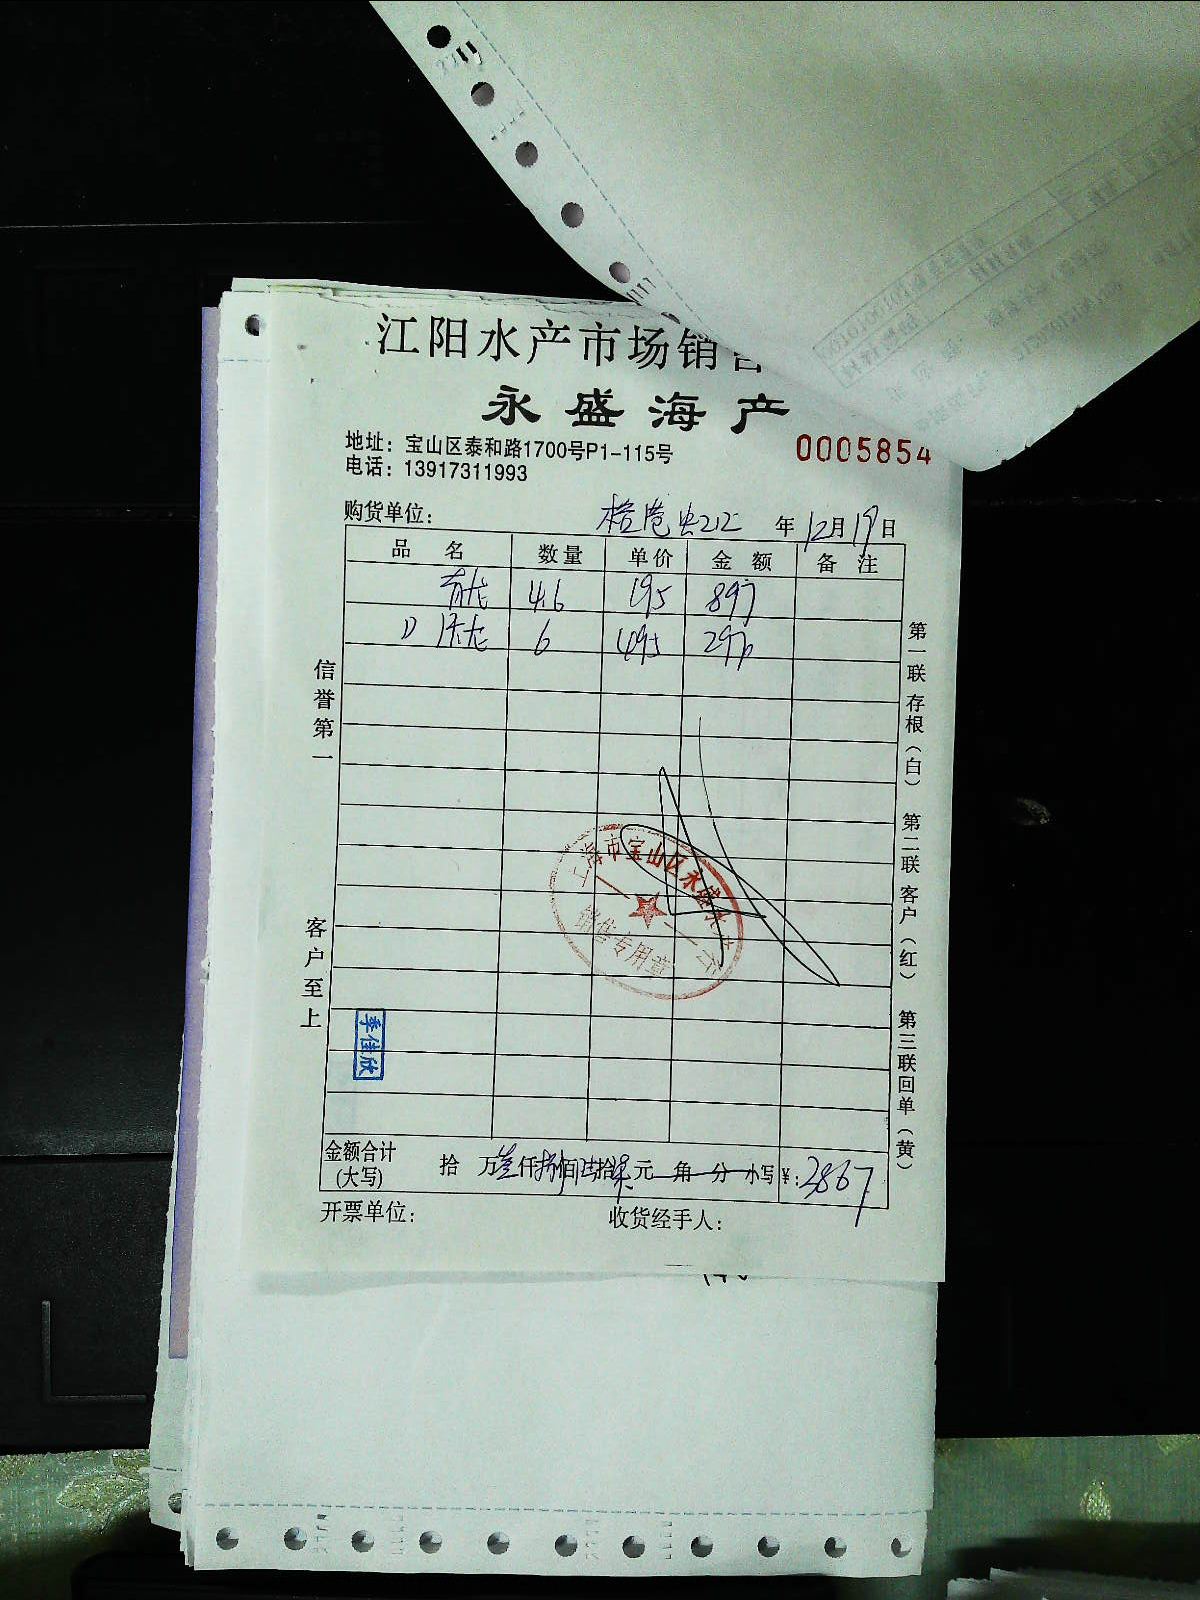 江阳水产市场销售
永盛海产
地址：宝山区泰和路1700号P1-115号
电话：13917311993
0005854
购货单位： 年12月19日
品 名 数量 单价 金 额 备 注
青龙 4.6 195 897
6 495 2970
信誉第一
客户至上
第一联 存根（白） 第二联 客户（红） 第三联 回单（黄）
上海市宝山区永盛水产
销售专用章
季佳欣
金额合计（大写） 拾 万 仟捌佰陆拾柒元 角 分 小写￥：3867
开票单位： 收货经手人：